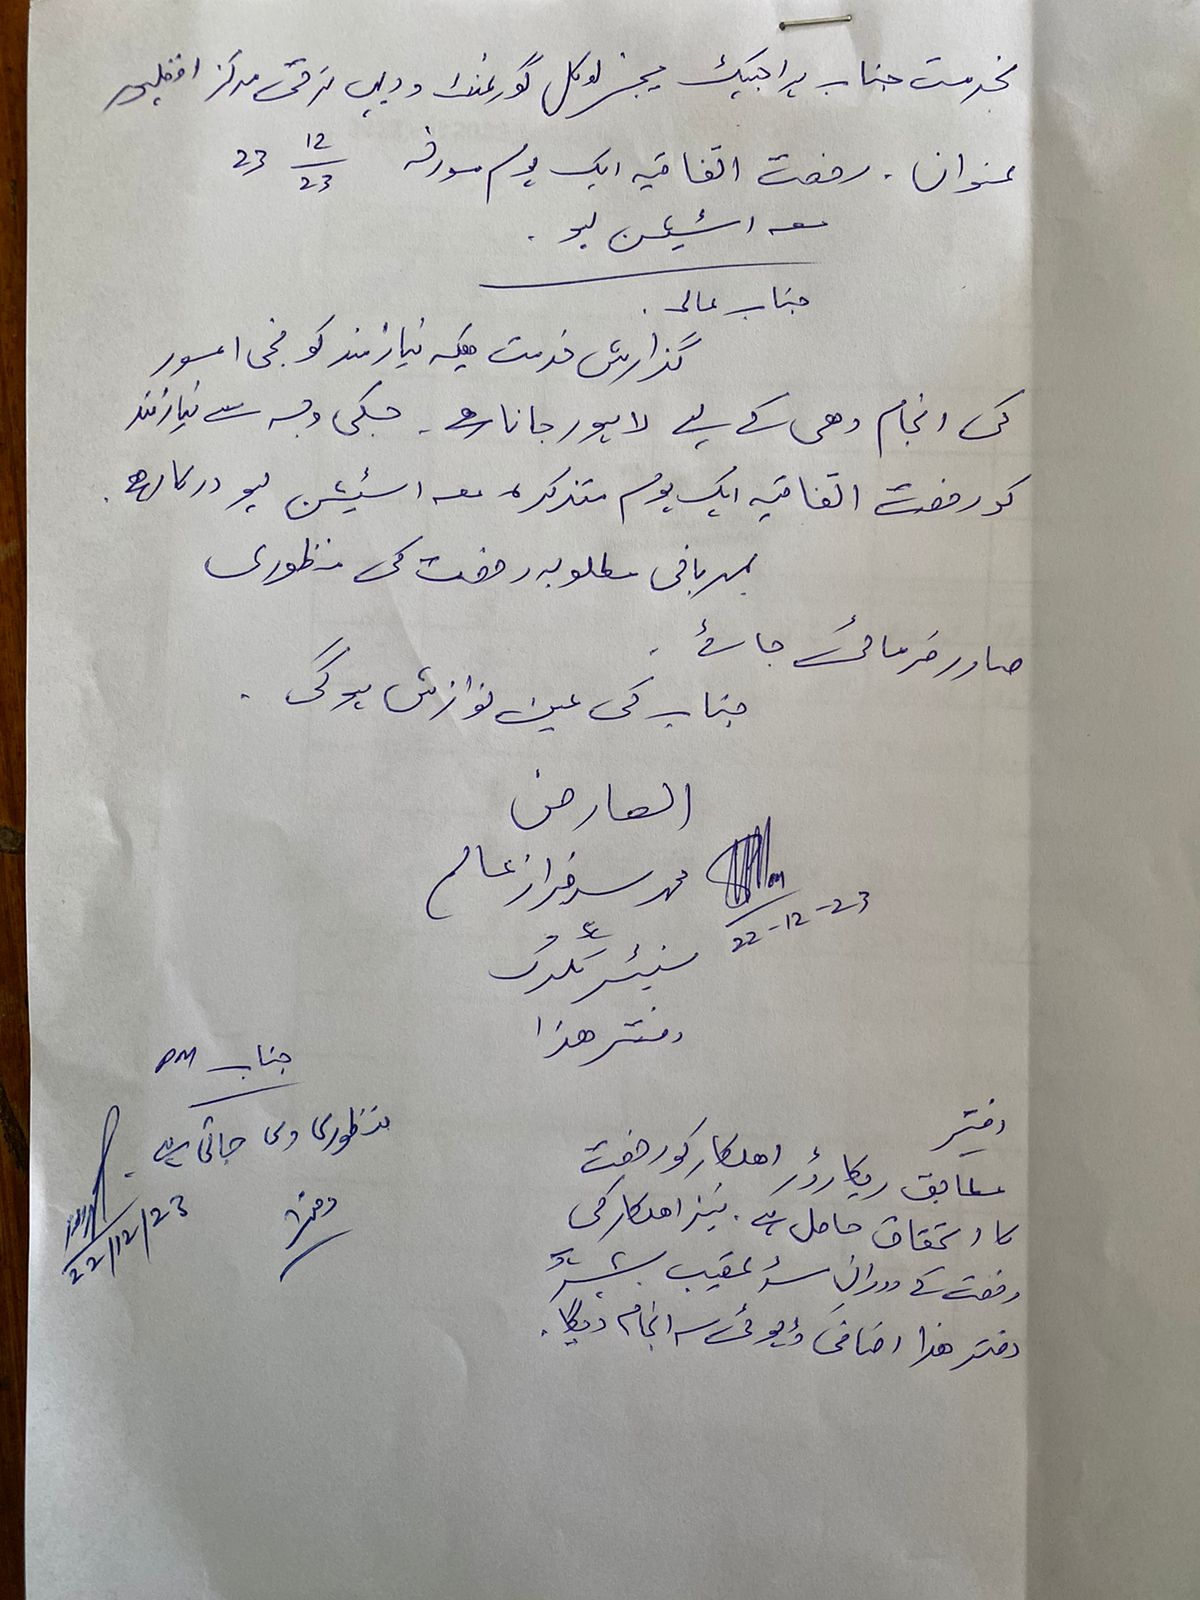 بخدمت جناب پراجیکٹ مینجر لوکل گورنمنٹ و دیہی ترقی مرکز افضلپور
عنوان . رخصت اتفاقیہ ایک یوم مورخہ 23 12/23
معہ اسٹیشن لیو .
جناب عالی .
گذارش خدمت ھیکہ نیازمند کو نجی امور
کی انجام دھی کے لیے لاہور جانا ھے . جسکی وجہ سے نیازمند
کو رخصت اتفاقیہ ایک یوم متذکرہ معہ اسٹیشن لیو درکار ھے .
بمہربانی مطلوبہ رخصت کی منظوری
صادر فرمائی جائے .
جناب کی عین نوازش ہوگی .
العارض
محمد سرفراز عالم
22-12-23
سنیئر کلرک
دفتر ھذا
دفتر
مطابق ریکارڈ اھلکار کو رخصت
کا استحقاق حاصل ہے . نیز اھلکار کی
رخصت کے دوران عقیب بشیر
دفتر ھذا اضافی ڈیوٹی سر انجام دیگا .
جناب PM
منظوری دی جاتی ہے .
دفتر
22/12/23